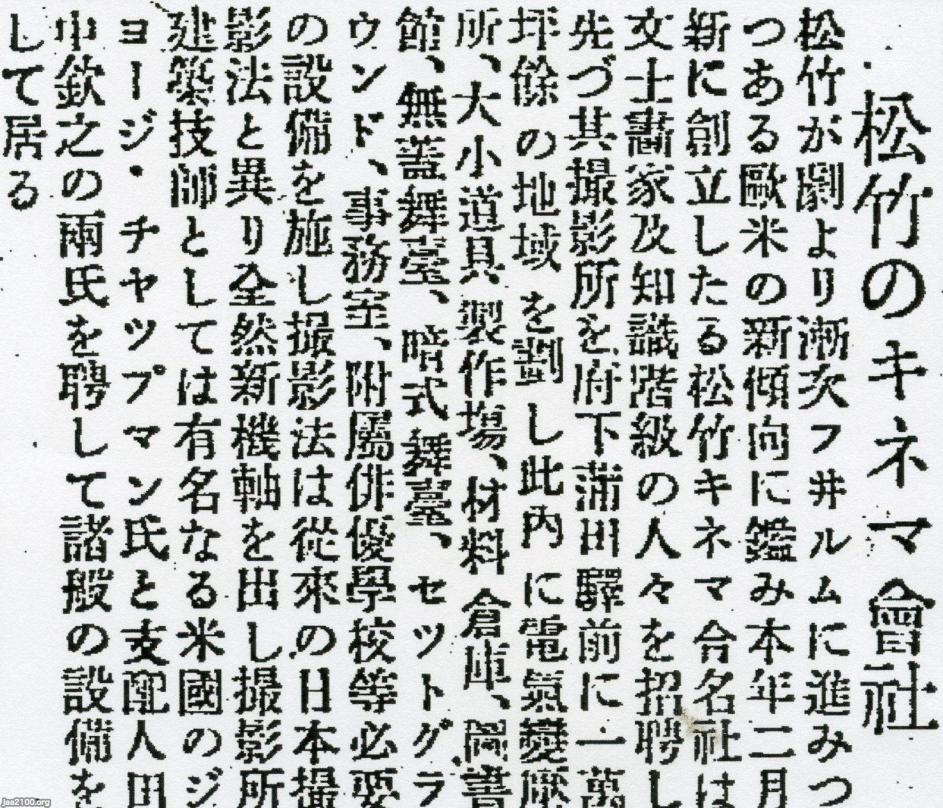 松竹のキネマ會社
松竹が劇より漸次フ井ルムに進みつ
つある歐米の新傾向に鑑み本年二月
新に創立したる松竹キネマ合名社は
文士畵家及知識階級の人々を招聘し
先づ其撮影所を府下蒲田驛前に一萬
坪餘の地域を劃し此内に電氣變壓
所、大小道具製作場、材料倉庫、圖書
館、無蓋舞臺、暗式舞臺、セツトグラ
ウンド、事務室、附屬俳優學校等必要
の設備を施し撮影法は從來の日本撮
影法と異り全然新機軸を出し撮影所
建築技師としては有名なる米國のジ
ヨージ・チヤツプマン氏と支配人田
中欽之の兩氏を聘して諸般の設備を
して居る
Jaa2100.org